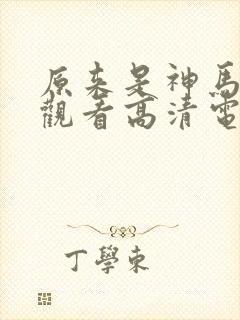 原来是神馬
觀看高清電
丁學東